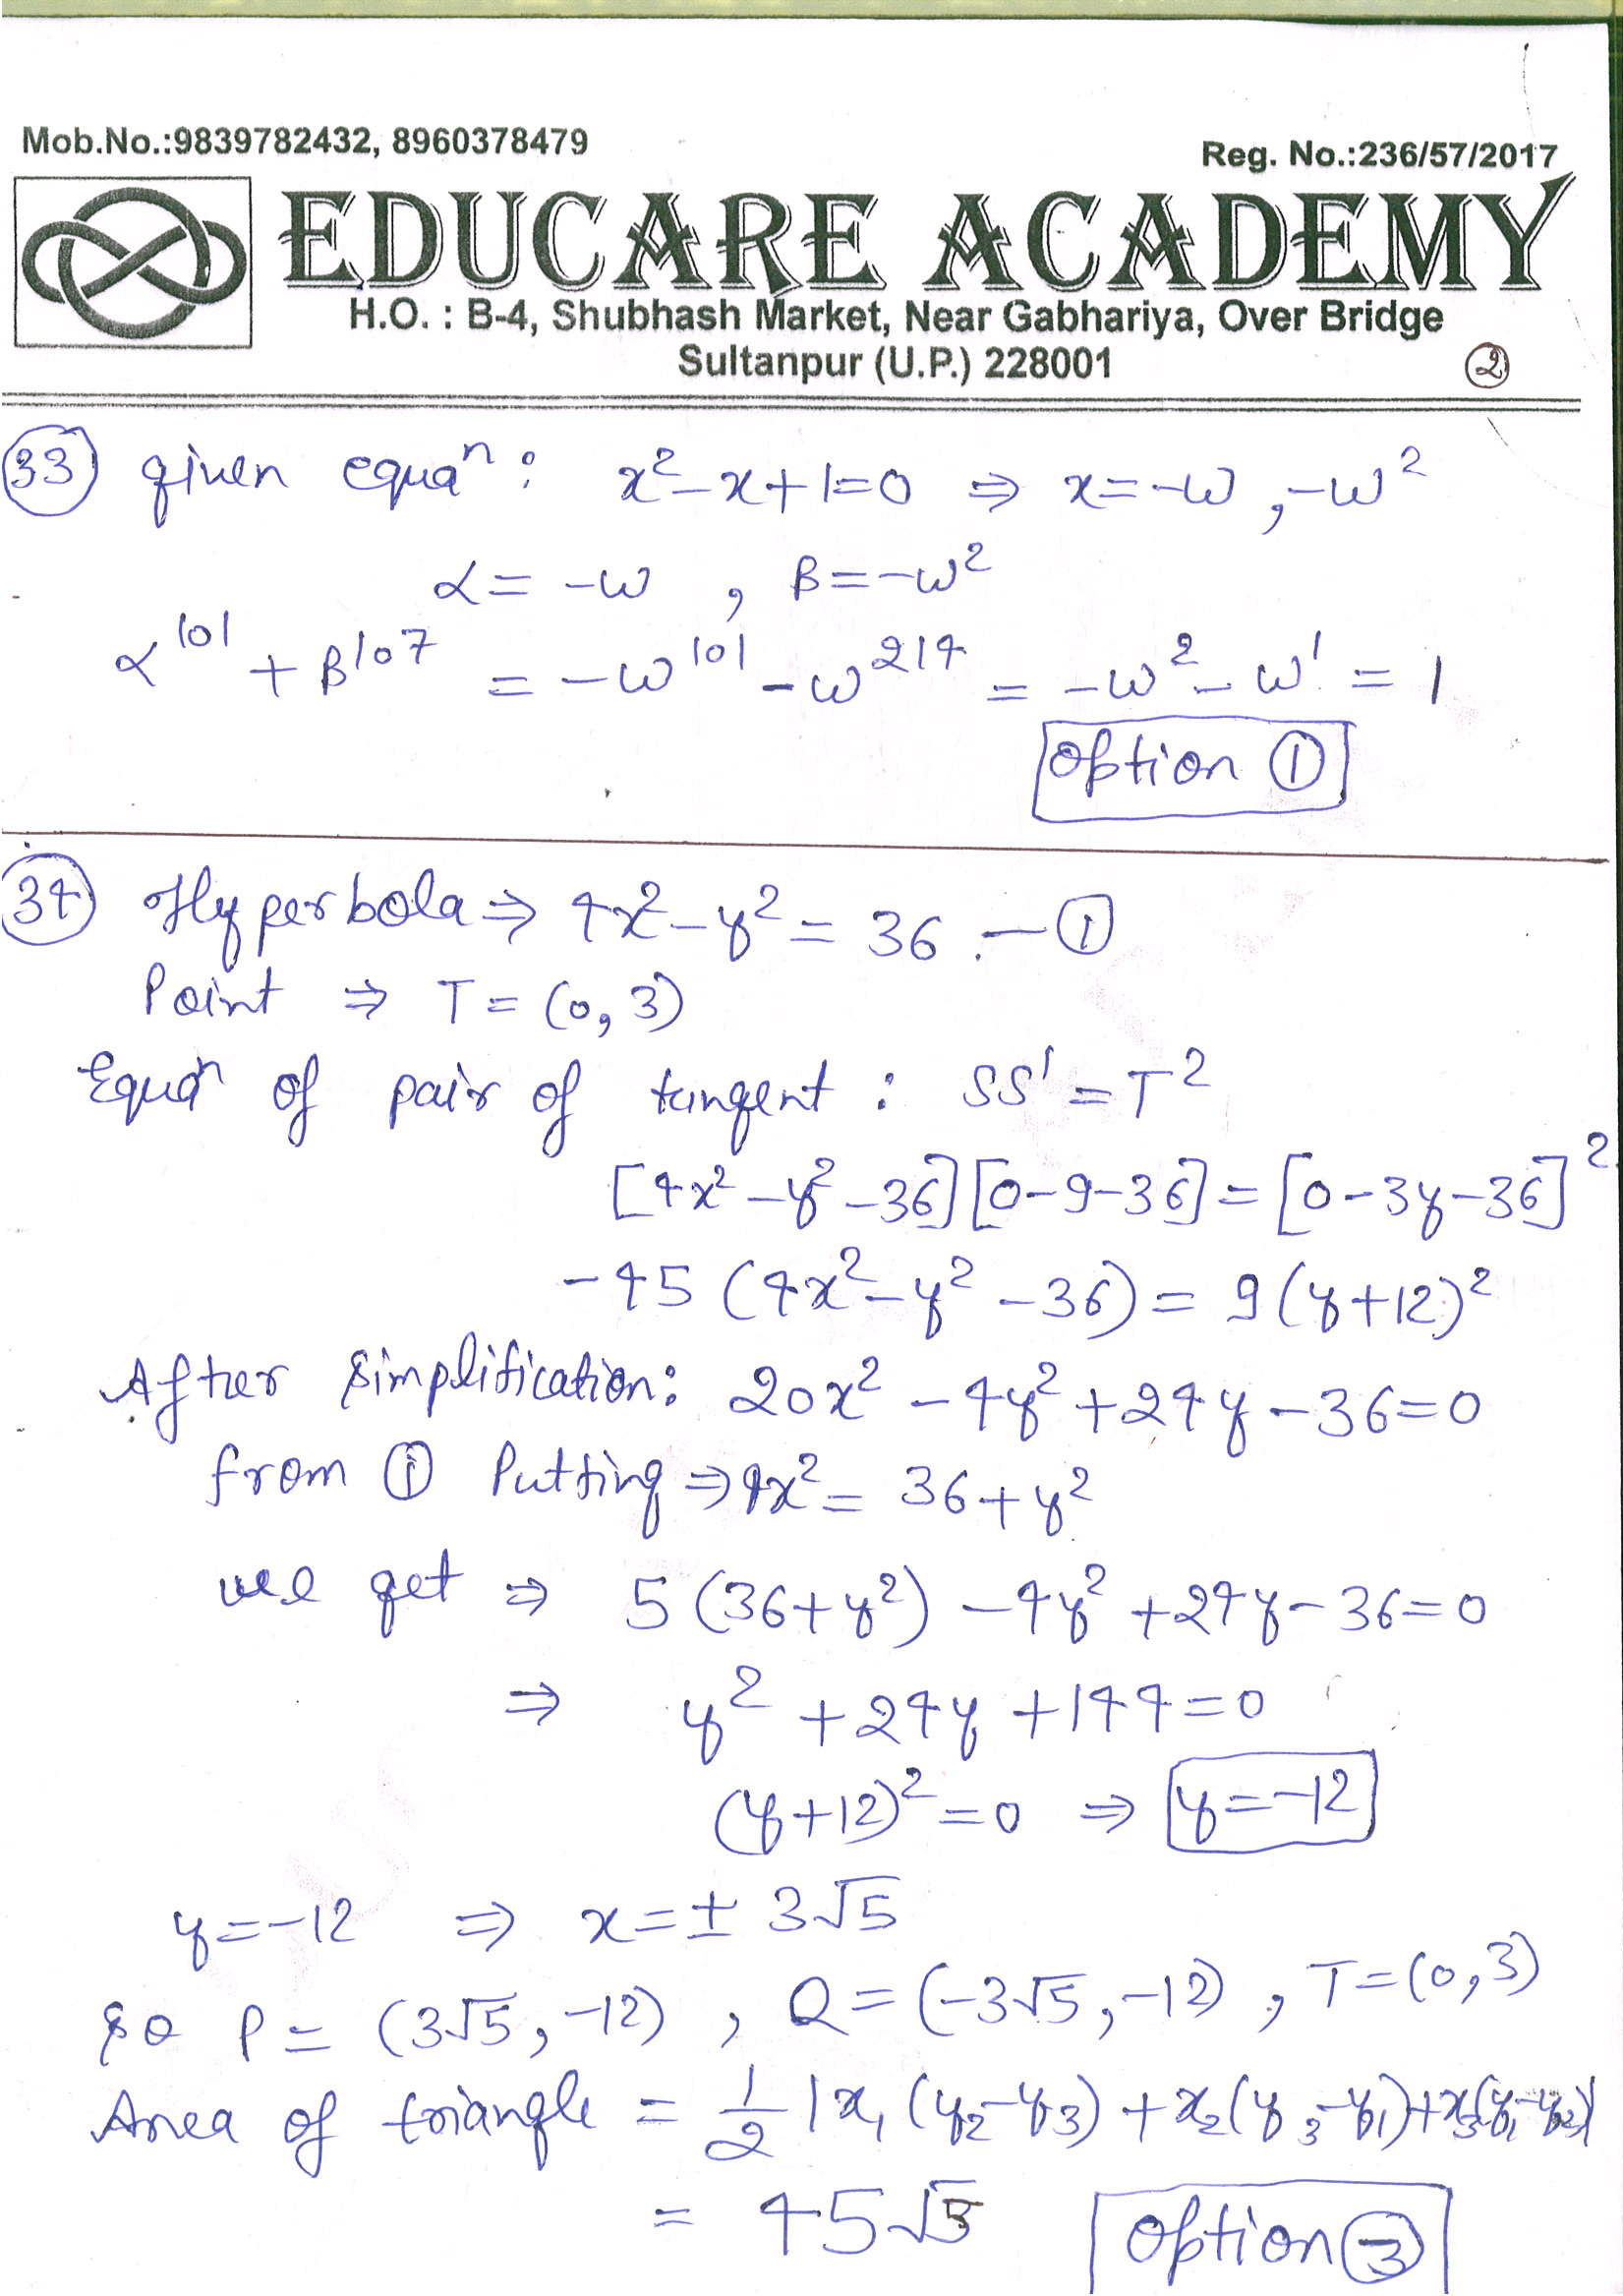 Mob.No.:9839782432, 8960378479
Reg. No.:236/57/2017
EDUCARE ACADEMY
H.O. : B-4, Shubhash Market, Near Gabhariya, Over Bridge
Sultanpur (U.P.) 228001
②
㉝ given equaⁿ: x² - x + 1 = 0 ⇒ x = -ω, -ω²
α = -ω , β = -ω²
α¹⁰¹ + β¹⁰⁷ = -ω¹⁰¹ - ω²¹⁴ = -ω² - ω¹ = 1
Option ①
㉞ Hyperbola ⇒ 4x² - y² = 36 — ①
Point ⇒ T = (0, 3)
Equaⁿ of pair of tangent : SS' = T²
[4x² - y² - 36][0 - 9 - 36] = [0 - 3y - 36]²
-45 (4x² - y² - 36) = 9 (y + 12)²
After simplification: 20x² - 4y² + 24y - 36 = 0
from ① Putting ⇒ 4x² = 36 + y²
we get ⇒ 5 (36 + y²) - 4y² + 24y - 36 = 0
⇒ y² + 24y + 144 = 0
(y + 12)² = 0 ⇒ y = -12
y = -12 ⇒ x = ± 3√5
so P = (3√5, -12) , Q = (-3√5, -12) , T = (0, 3)
Area of triangle = 1/2 |x₁ (y₂ - y₃) + x₂ (y₃ - y₁) + x₃ (y₁ - y₂)|
= 45√5 Option ③